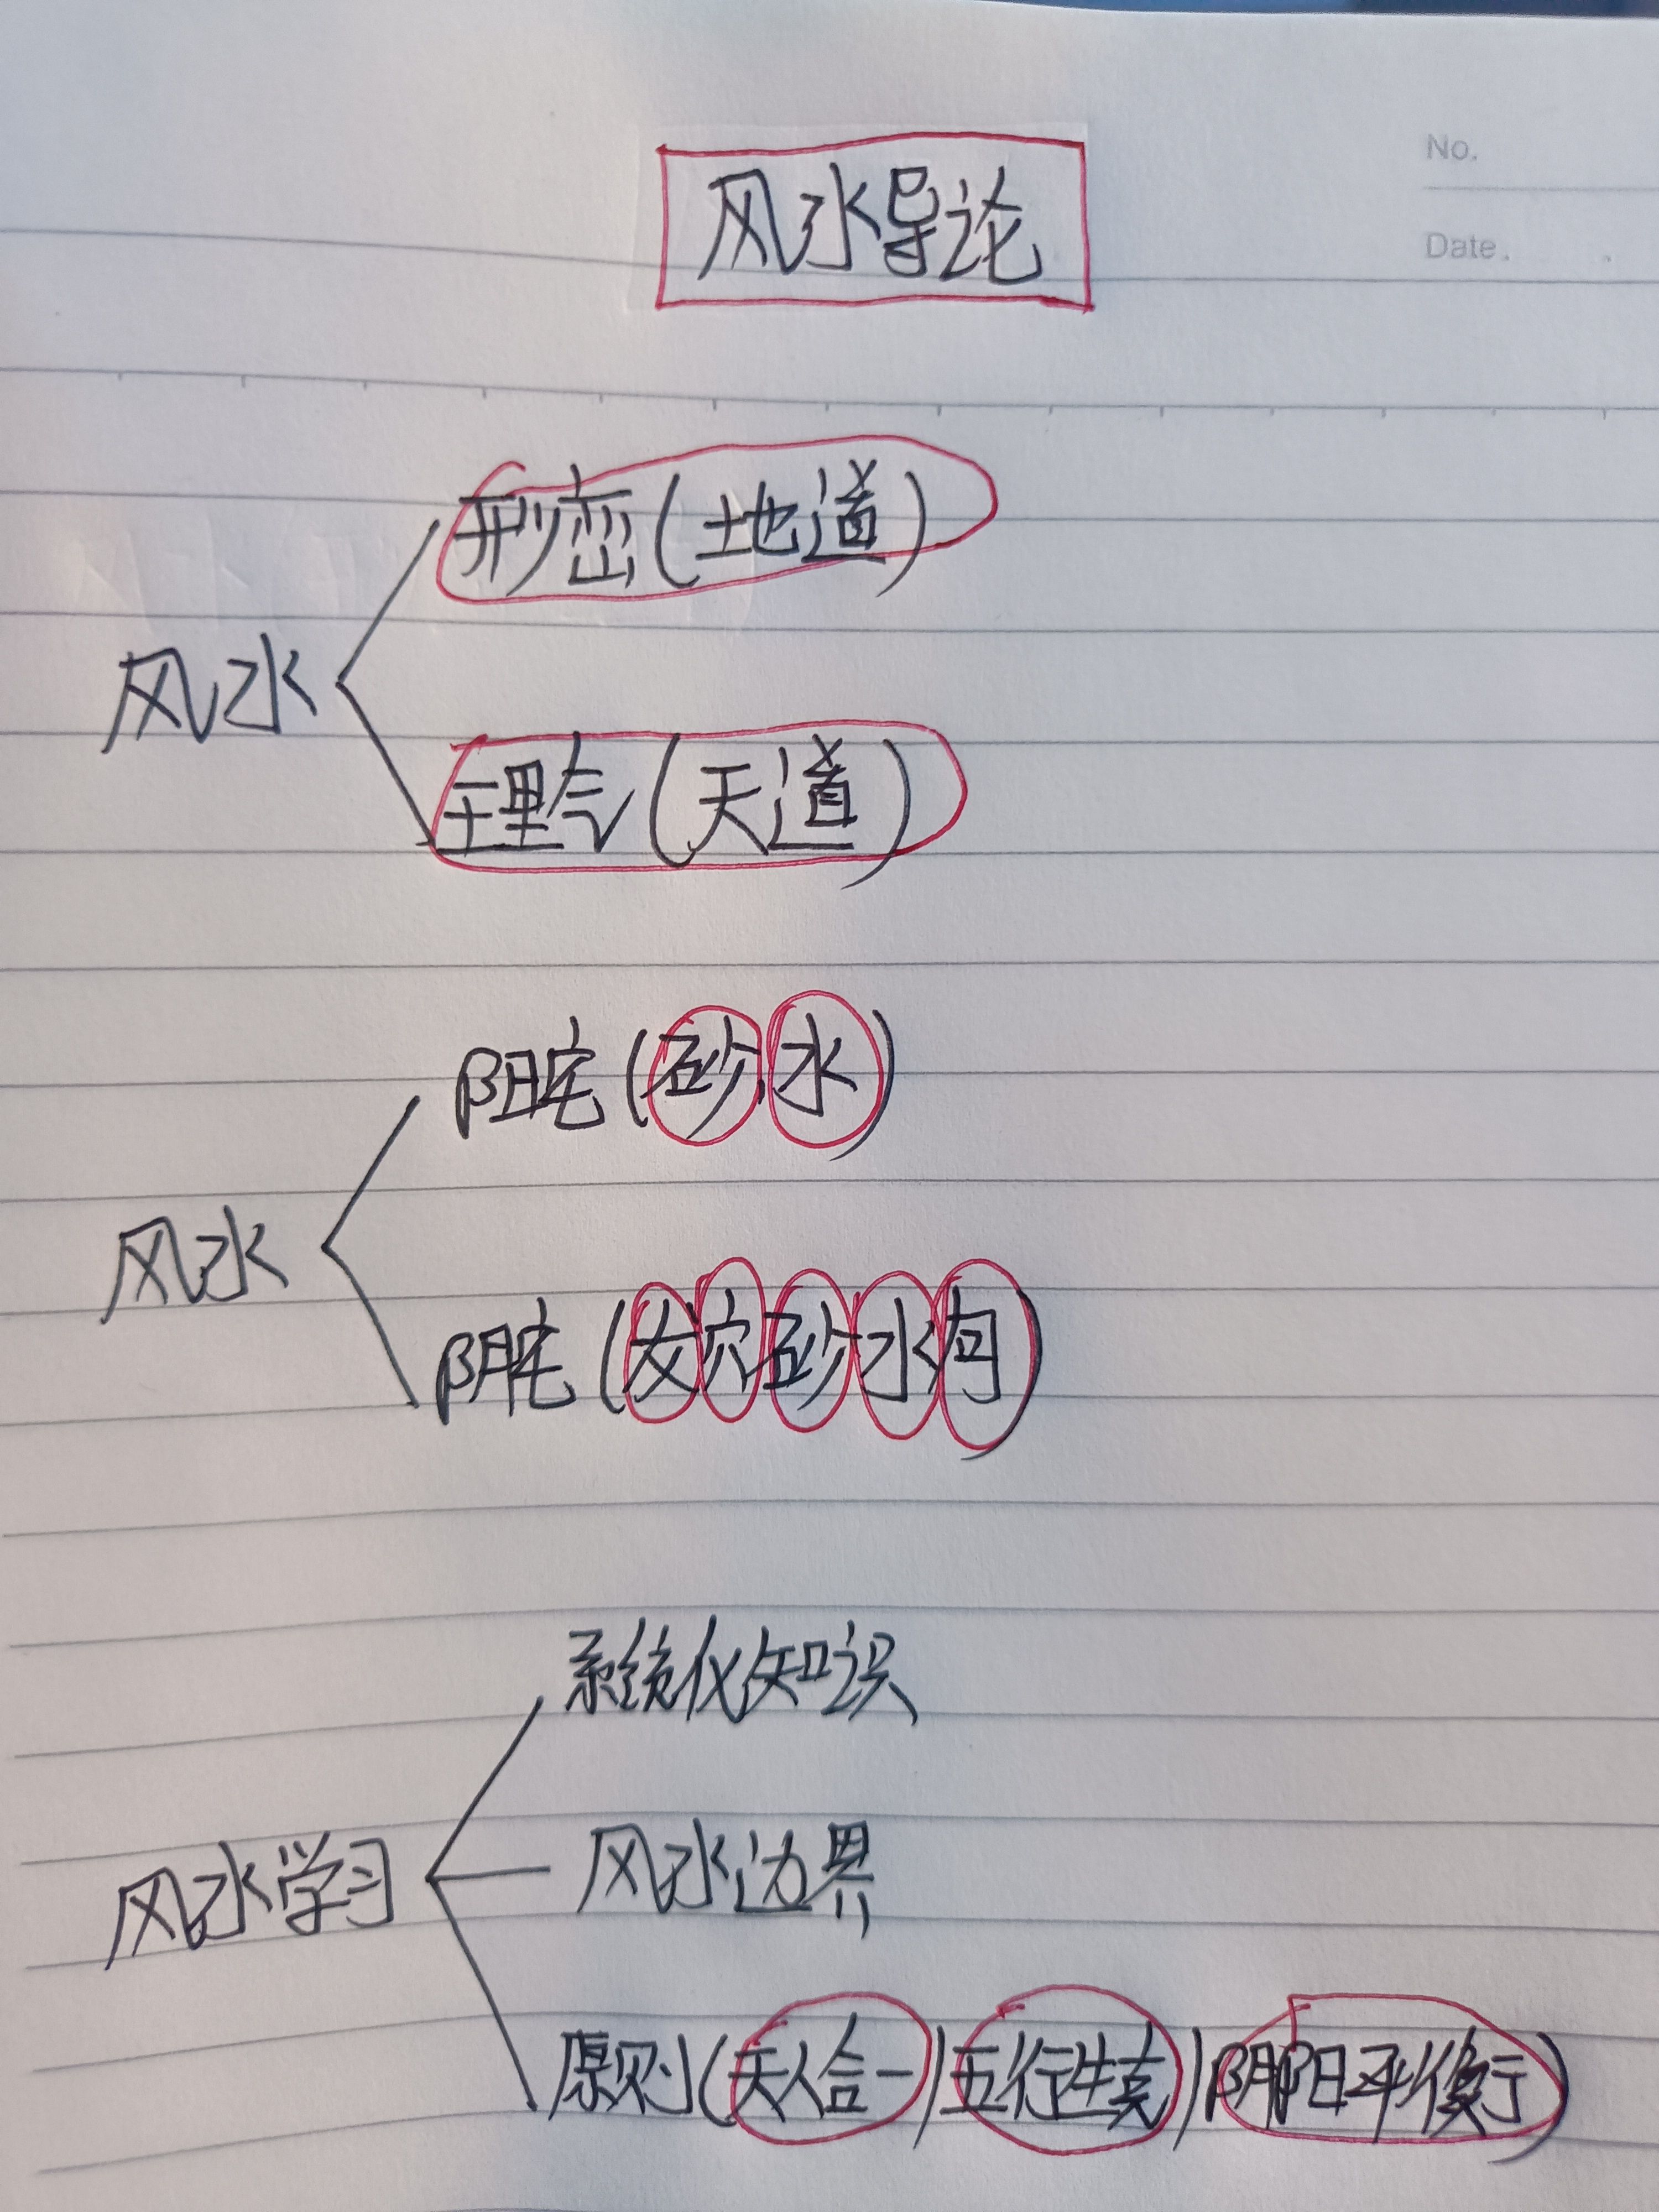 No.
Date.
风水导论
形峦(地道)
风水
理气(天道)
阳宅(砂水)
风水
阴宅(穴砂水向)
系统化知识
风水学习
风水边界
原则(天人合一/五行生克/阴阳平衡)